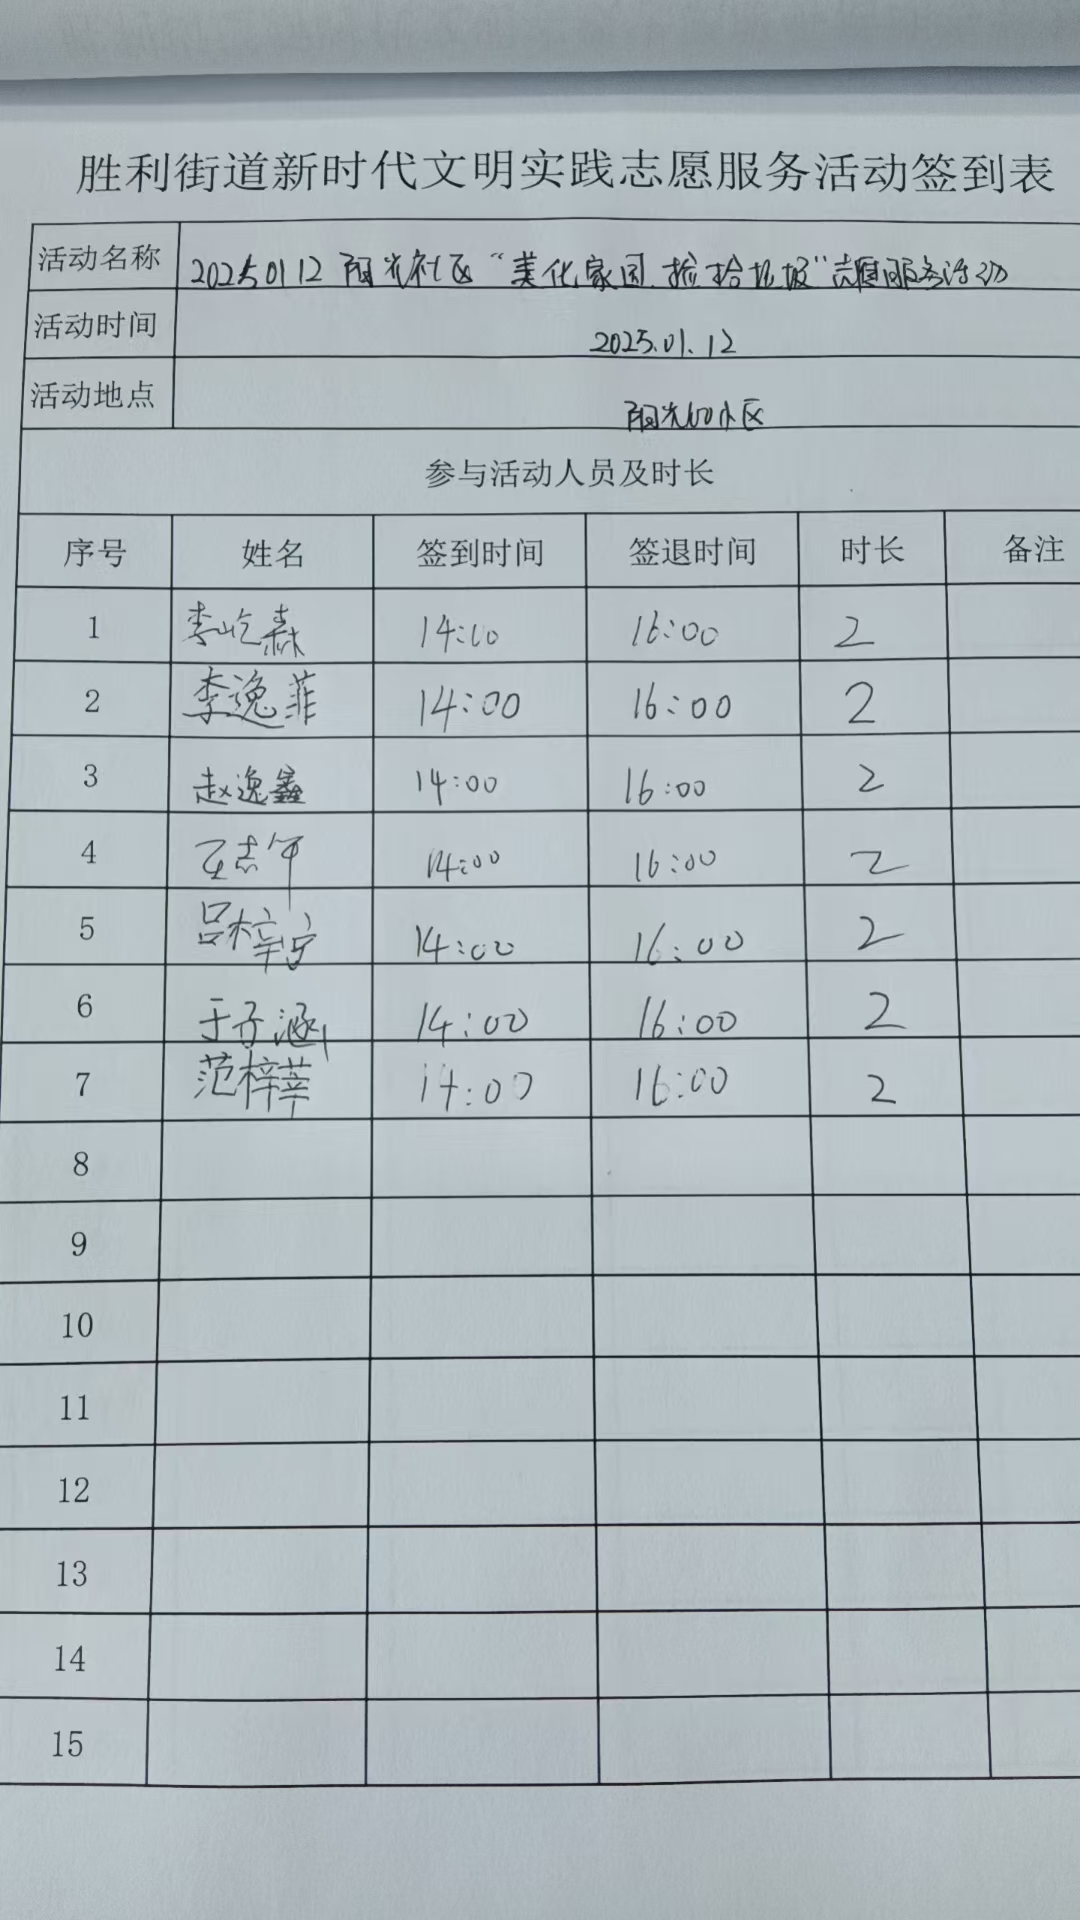 胜利街道新时代文明实践志愿服务活动签到表
活动名称 20250112 阳光社区“美化家园.捡拾垃圾”志愿服务活动
活动时间 2025.01.12
活动地点 阳光100小区
参与活动人员及时长
序号 姓名 签到时间 签退时间 时长 备注
1 李屹森 14:00 16:00 2
2 李逸菲 14:00 16:00 2
3 赵逸鑫 14:00 16:00 2
4 14:00 16:00 2
5 吕梓 14:00 16:00 2
6 于子涵 14:00 16:00 2
7 范梓莘 14:00 16:00 2
8
9
10
11
12
13
14
15